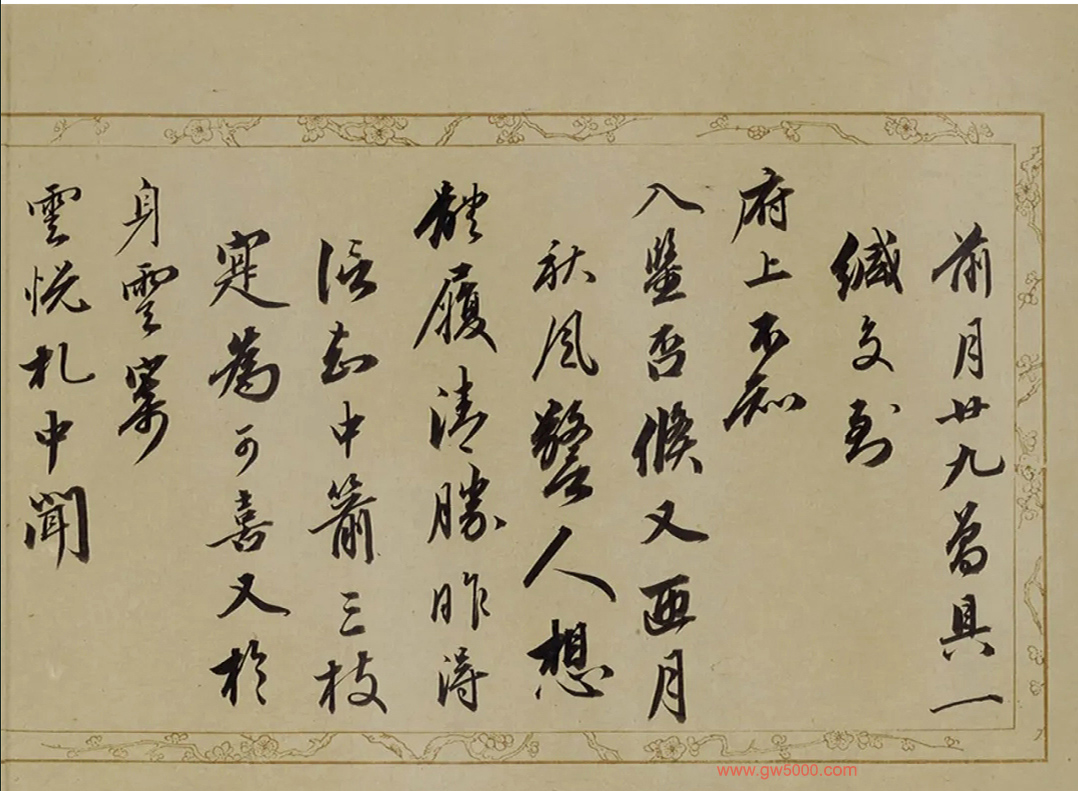 前月廿九曾具一
緘交到
府上不知
入鑒否倏又兩月
秋風警人想
體履清勝昨得
信知中箭三枝
寔為可喜又於
身雲寮
雲悅札中聞
www.gw5000.com